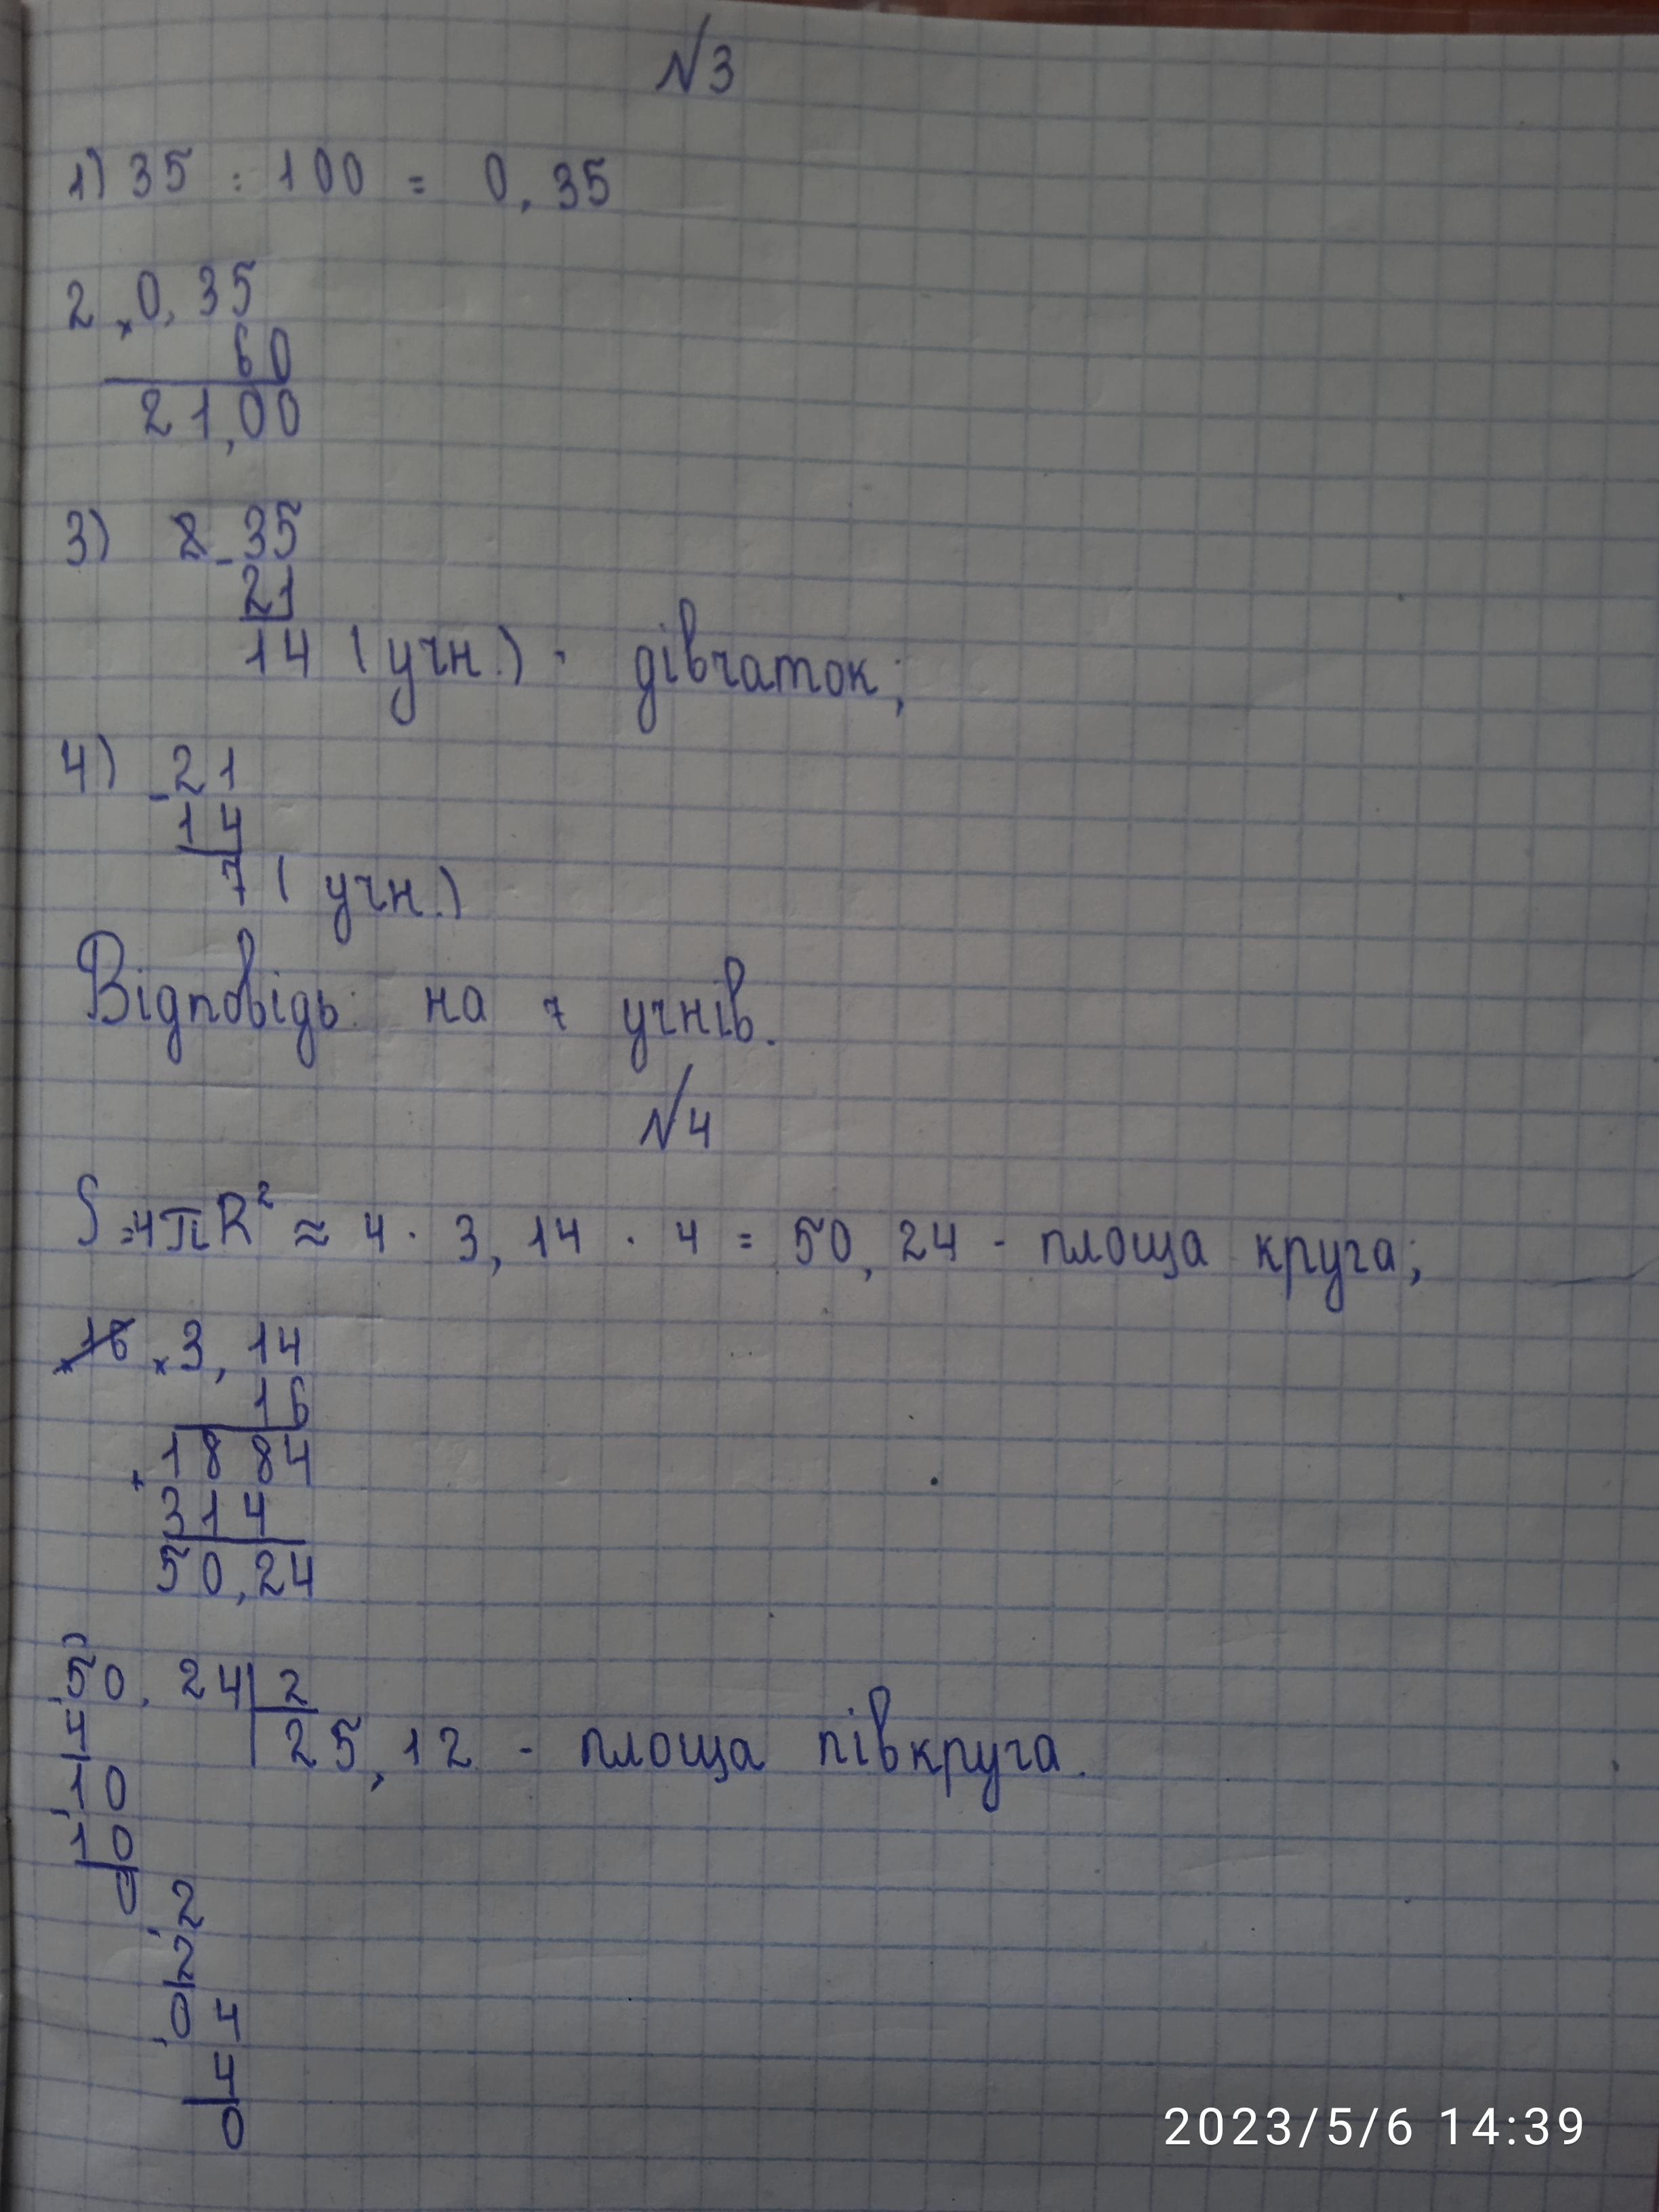 №3
1) 35 : 100 = 0,35
2 × 0,35
60
21,00
3) 2 - 35
21
14 (учн.) - дівчаток;
4) - 21
14
7 (учн.)
Відповідь: на 7 учнів.
№4
S=4πR² ≈ 4 · 3,14 · 4 = 50,24 - площа круга;
× 3,14
16
+ 1884
314
50,24
50,24 | 2
4 25,12 - площа півкруга.
10
10
0 2
2
0 4
4
0
2023/5/6 14:39